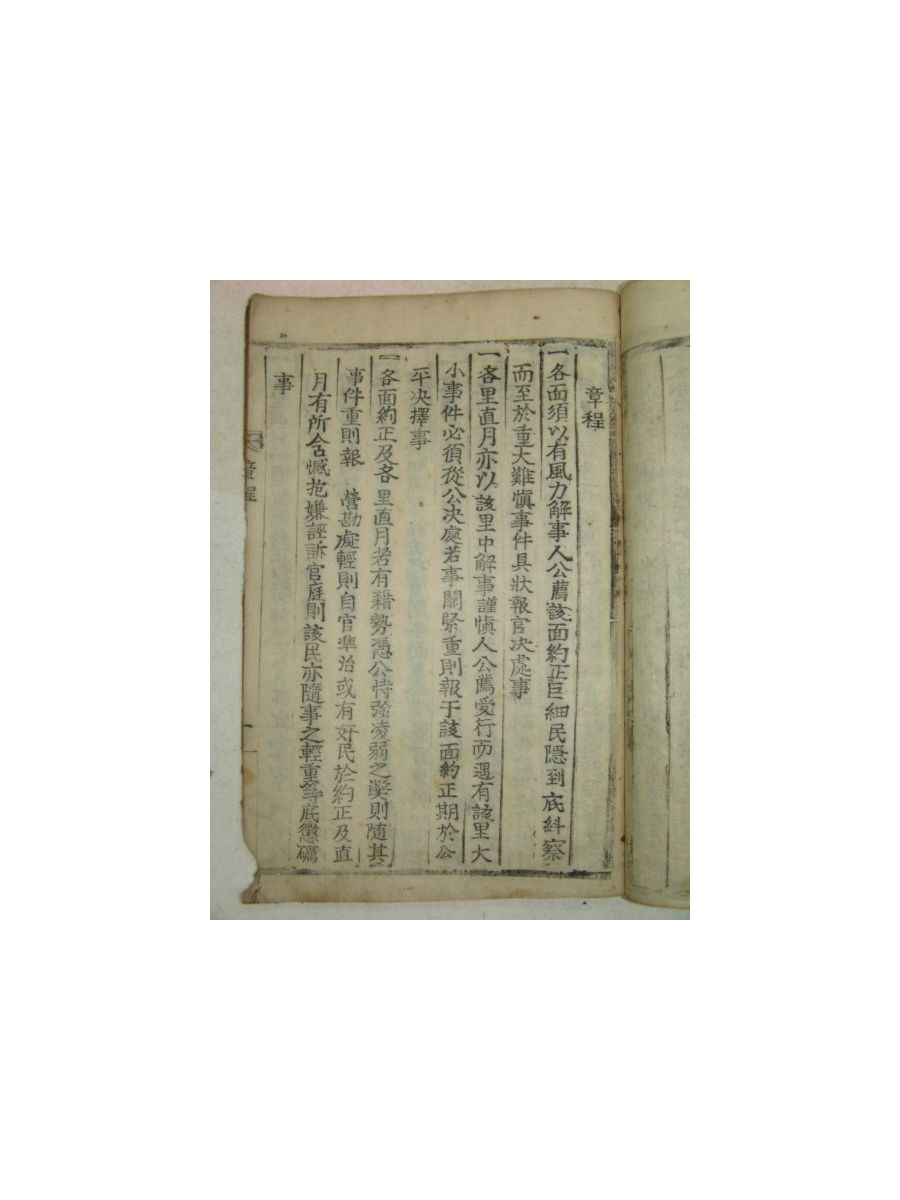 章程
一各面須以有風力解事人公薦該面約正巨細民隱到底糾察
而至於重大難愼事件具狀報官决處事
一各里直月亦以該里中解事謹愼人公薦受行而遇有該里大
小事件必須從公决處若事關緊重則報于該面約正期於公
平决擇事
一各面約正及各里直月若有藉勢憑公恃强凌弱之獘則隨其
事件重則報 營勘處輕則自官準治或有好民於約正及直
月有所含憾抱嫌誣訴官庭則該民亦隨事之輕重等底懲礪
事
章程
一